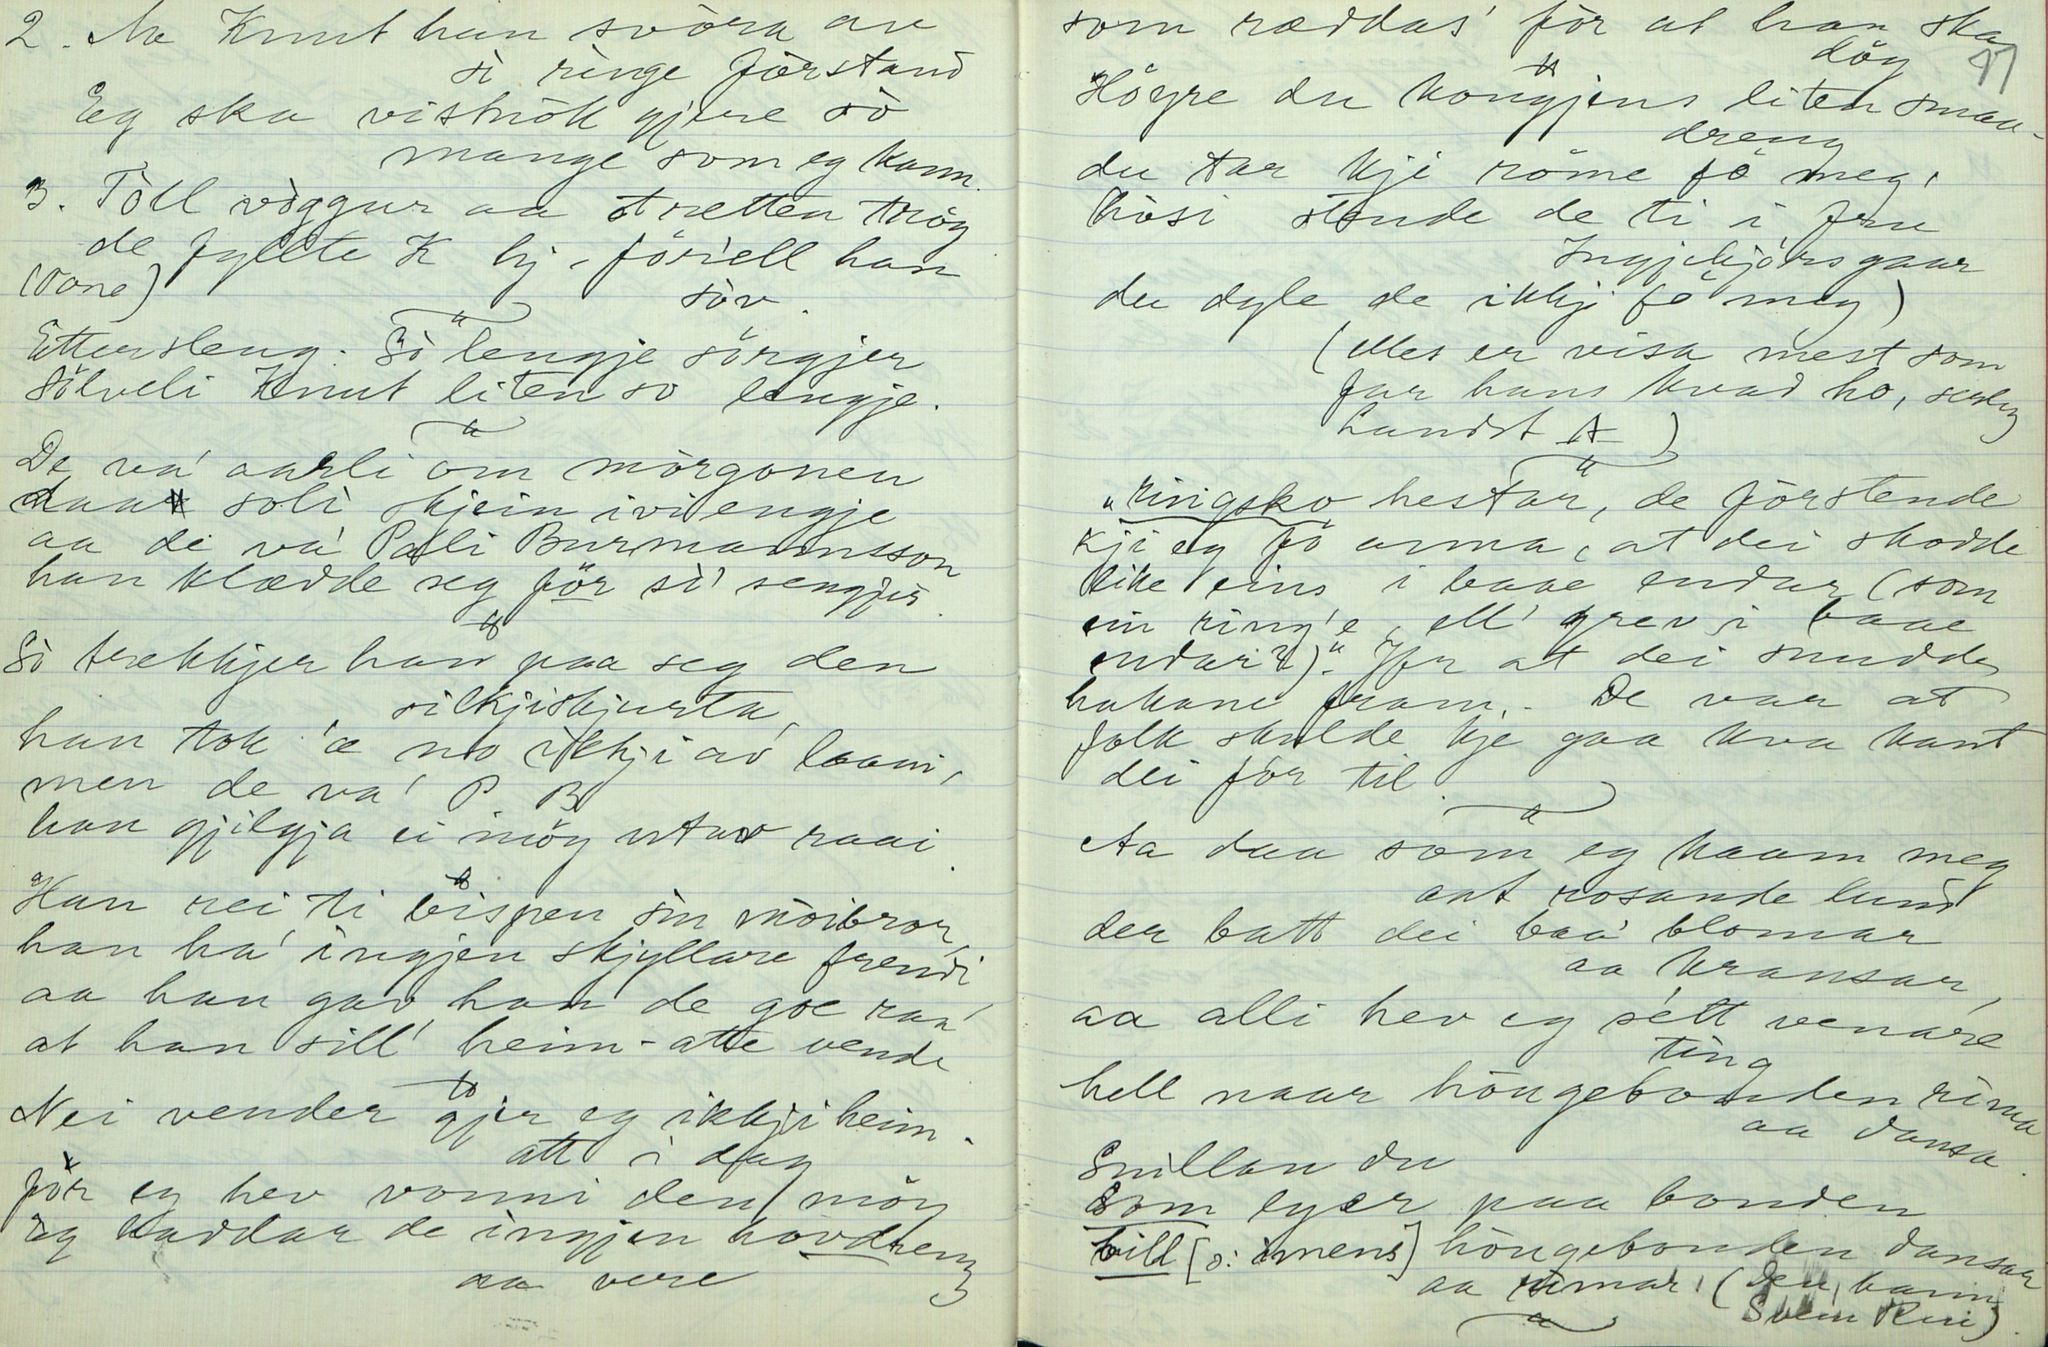 2. No Knut han svöra av
si ringe förstand
Eg ska vistnok gjere sò
mange som eg kann.
3. Tòll vòggur aa tretten tròg
de fyllte K lij - föriell han
(Tone) söv.
Ettersleng. Sò lengje sörgjer
Sölveli Knut liten so lengje.
De va' aarli om mòrgonen
daa soli skjein ivi engje
aa de va' Palli Burmannsson
han klædde seg för si' sengjir.
Sò trekkjer han paa seg den
silkjiskjurta,
han tok 'æ no ikkji av laani,
men de va' P. B
han gjilgja ei möy utav raai.
Han rei ti bispen sin moibror,
han ha' ingjen skjyllare frendi
aa han gav han de goe raa'
at han sill' heim-atte vende
Nei vender gjer eg ikkji heim-
att i dag
för eg hev vonni den möy
eg raddar de ingjen hovdreng
aa vere
som ræddas' för at han ska
döy 47
Högre du kongjens liten smaa-
dreng
du tar kji röme fó meg,
hòsi stende de ti i fru
Ingjebjörs gaar
du dyle de ikkji fó meg)
(elles er visa mest som
far hans kvad ho, serleg
Landst A)
"ringsko hestar, de förstende
kji eg fó anna, at dei skodde
like eins i baae endar (som
ein ring'e, ell' grev i baae
endar?)". Ifr at dei snudde
hakane fram. - De var at
folk skulde kje gaa kva kant
dei fór til.
Aa daa som eg kaam meg
aat rosande lund
der batt dei baa' blomar
aa kransar,
aa alli hev eg sétt venare
ting
hell naar höngebonden rima
aa dansa.
Snillan du
som eyer paa bonden
bill [ɔ: imens] höngebonden dansar
aa rimar. (Den, kann
Svein Rui).